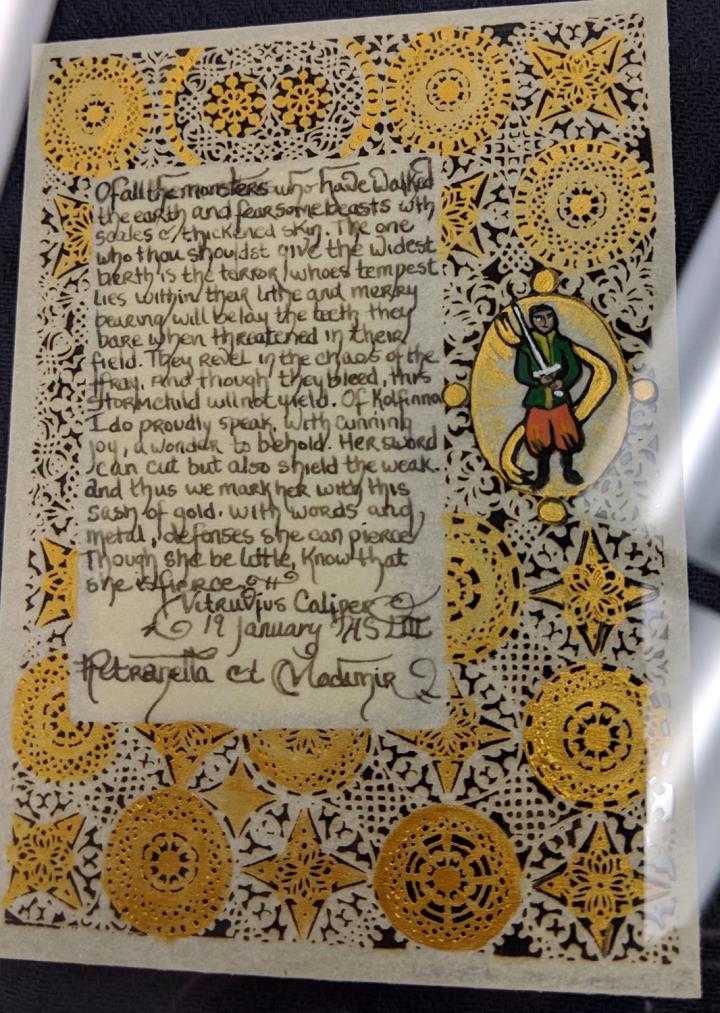 Of all the monsters who have walked
the earth and fearsome beasts with
scales or thickened skin. The one
who thou shouldst give the widest
berth is the terror whoes tempest
lies within their lithe and merry
bearing will belay the teeth they
bare when threatened in their
field. They revel in the chaos of the
fray, And though they bleed, this
Stormchild will not yield. Of Kolfinna
I do proudly speak, with cunning
joy, a wonder to behold. Her sword
can cut but also shield the weak.
and thus we mark her with this
sash of gold. With words and
metal, defenses she can pierce
Though she be little, Know that
she is fierce.
Vitruvius Caliper
19 January AS LIII
Petranella et Vladimir